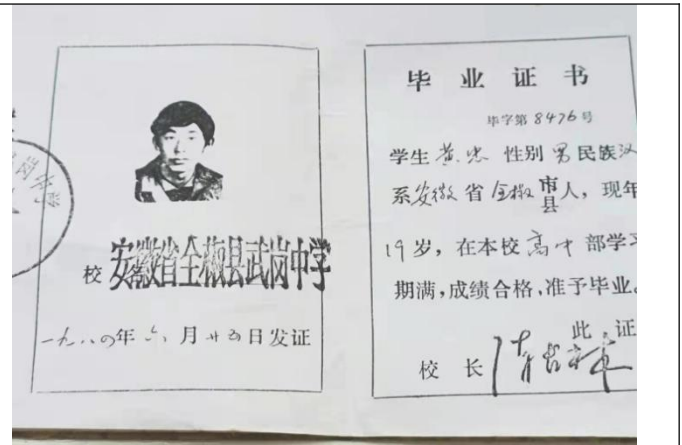 校 安徽省全椒县武岗中学
一九八〇年六月廿日发证
毕业证书
毕字第8476号
学生 黄忠 性别 男 民族 汉
系安徽省全椒市县人,现年
19岁,在本校高中部学习
期满,成绩合格,准予毕业。
此证
校长